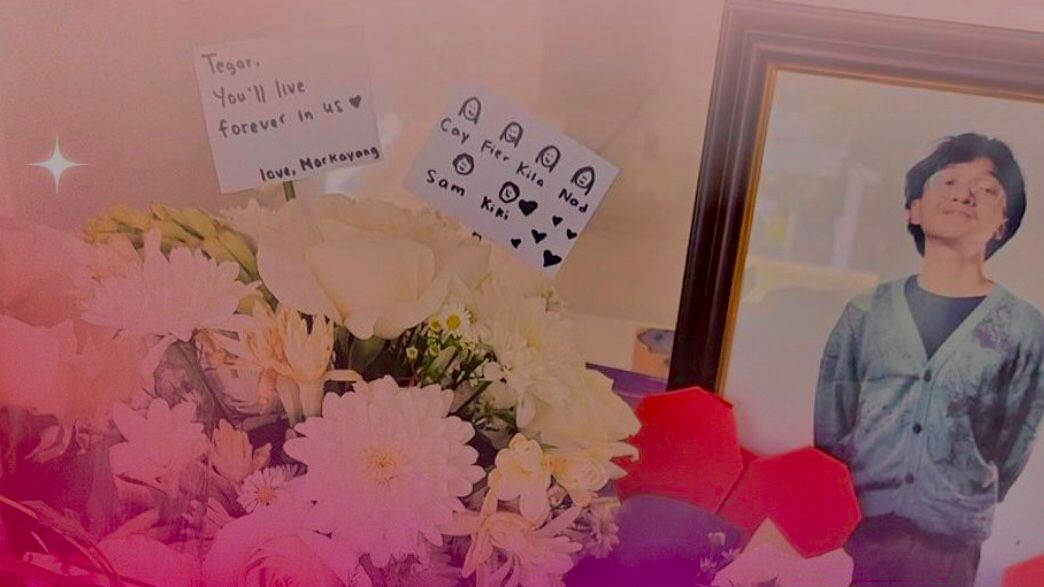 Tegar.
You'll live
forever in us
love, Markayang
Cay Fier Kila Nad
Sam Kiki